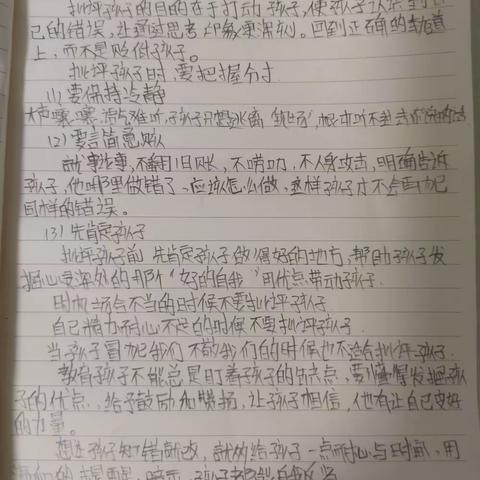 批评孩子的目的在于打动孩子,使孩子认识到自
己的错误,让通过思考印象更深刻。回到正确的轨道
上,而不是贬低孩子。
批评孩子时要把握分寸
(1)要保持冷静
大声嚷嚷,孩子只想逃离"现场",根本听不到
(2)要言简意赅
就事论事,不翻旧账,不唠叨,不人身攻击,明确告诉
孩子,他哪里做错了,应该怎么做,这样孩子才不会再犯
同样的错误。
(3)先肯定孩子
批评孩子前,先肯定孩子做得好的地方,帮助孩子发
掘心灵深处的那个"好的自我"用优点带动孩子.
时机场合不当的时候不要批评孩子
自己精力耐心不足的时候不要批评孩子.
当孩子冒犯我们不敬我们的时候也不适合批评孩子.
教育孩子不能总是盯着孩子的缺点,要懂得发掘孩
子的优点,给予鼓励和赞扬,让孩子相信,他有让自己变好
的力量。
想让孩子知错就改,就多给孩子一点耐心与时间,用
温和的提醒、暗示,孩子都能